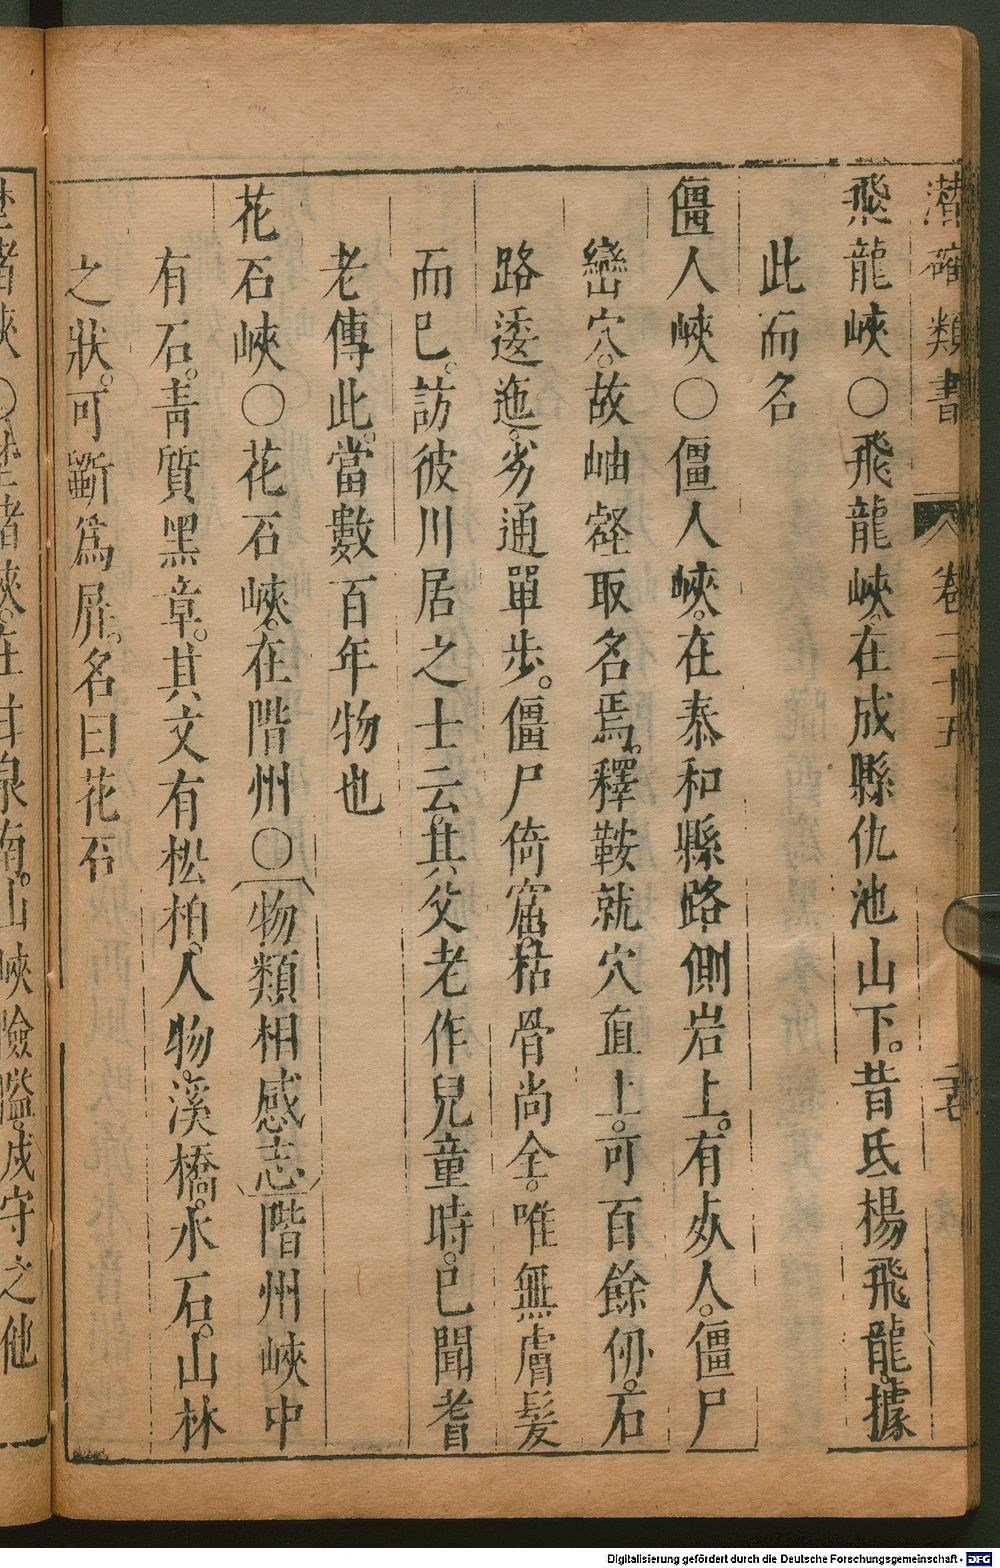 潛確類書 卷二十五 二七
飛龍峽○飛龍峽。在成縣仇池山下。昔氐楊飛龍。據
此而名
僵人峽○僵人峽。在泰和縣路側岩上。有死人。僵尸
巒穴。故岫壑取名焉。釋鞍就穴直上。可百餘仞。石
路逶迤。劣通單步。僵尸倚窟。枯骨尚全。唯無膚髪
而已。訪彼川居之士云。其父老作兒童時。已聞耆
老傳此。當數百年物也
花石峽○花石峽。在階州○物類相感志階州峽中
有石。青質黑章。其文有松柏。人物。溪橋。水石。山林
之狀。可斵爲屛。名曰花石
渚峽○渚峽。在甘泉南。山峽險隘。成守之他
Digitalisierung gefördert durch die Deutsche Forschungsgemeinschaft - DFG